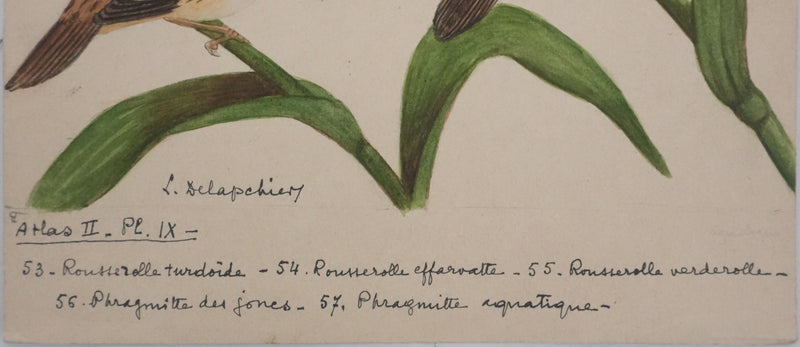 L. Delapchier
Atlas II - Pl. IX -
53 - Rousserolle turdoïde - 54. Rousserolle effarvatte - 55. Rousserolle verderolle -
56. Phragmitte des joncs - 57. Phragmitte aquatique -